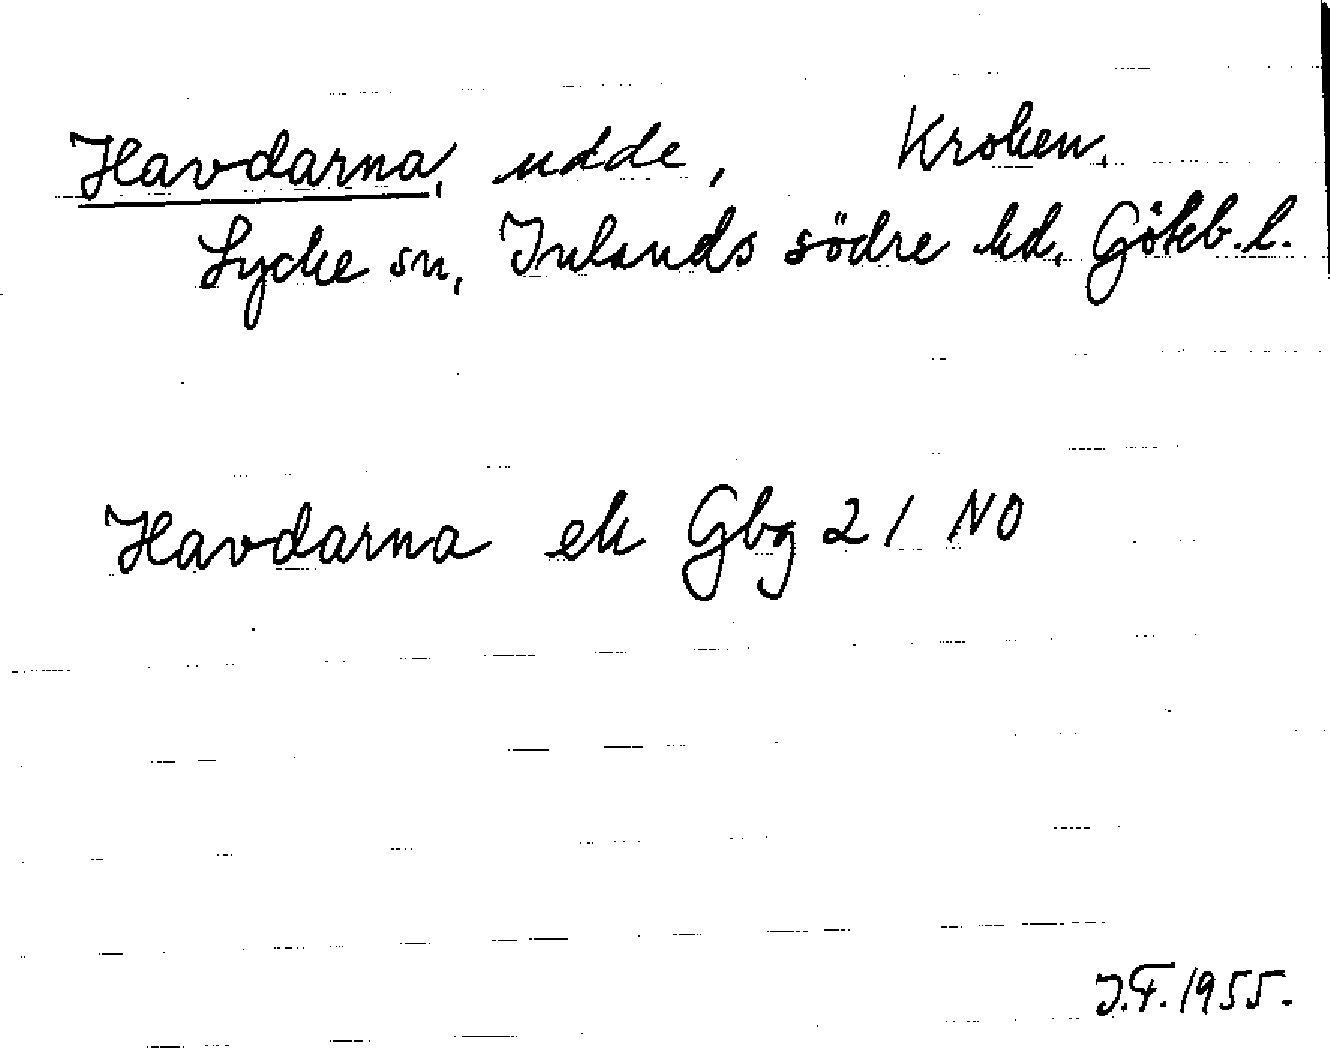 Havdarna, udde, Kroken,
Lycke sn, Inlands södre hd, Göteb. l.
Havdarna ek Gbg 21 NO
J.F. 1955.